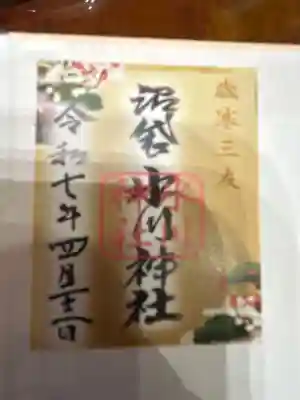 歳寒三友
沼袋氷川神社
令和七年四月十二日